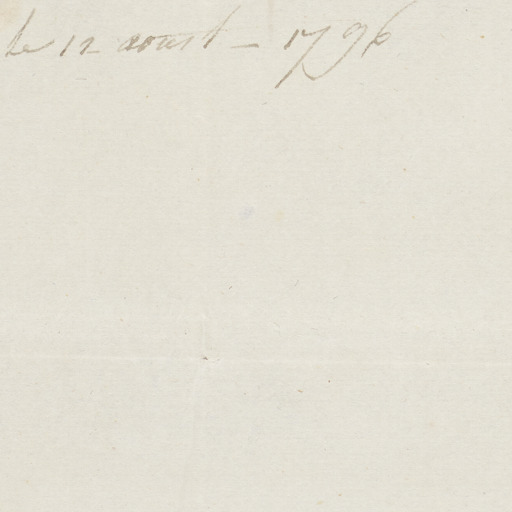 le 12 aoust - 1796